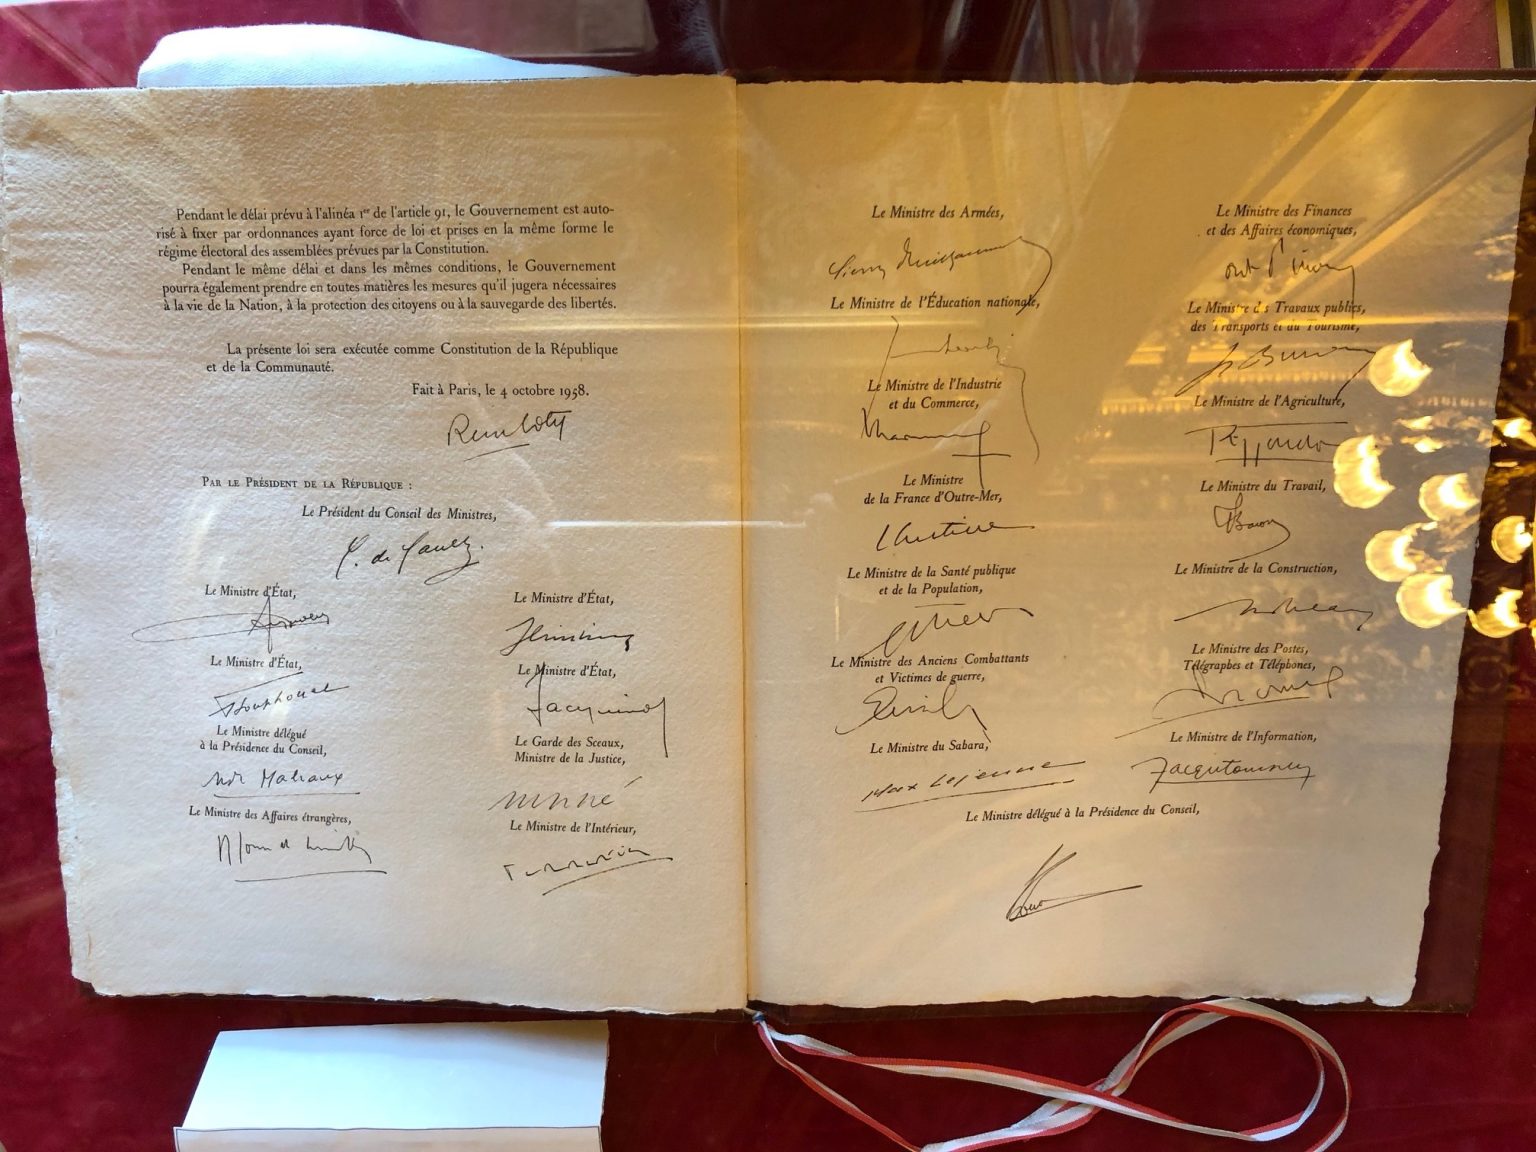 Pendant le délai prévu à l'alinéa 1er de l'article 91, le Gouvernement est auto-
risé à fixer par ordonnances ayant force de loi et prises en la même forme le
régime électoral des assemblées prévues par la Constitution.
Pendant le même délai et dans les mêmes conditions, le Gouvernement
pourra également prendre en toutes matières les mesures qu'il jugera nécessaires
à la vie de la Nation, à la protection des citoyens ou à la sauvegarde des libertés.
La présente loi sera exécutée comme Constitution de la République
et de la Communauté.
Fait à Paris, le 4 octobre 1958.
Par le Président de la République :
Le Président du Conseil des Ministres,
C. de Gaulle
Le Ministre d'État,
Le Ministre d'État,
Le Ministre d'État,
Le Ministre d'État,
Jacquinot
Le Ministre délégué
à la Présidence du Conseil,
Malraux
Le Garde des Sceaux,
Ministre de la Justice,
Le Ministre des Affaires étrangères,
Le Ministre de l'Intérieur,
Le Ministre des Armées,
Le Ministre de l'Éducation nationale,
Le Ministre de l'Industrie
et du Commerce,
Le Ministre
de la France d'Outre-Mer,
Le Ministre de la Santé publique
et de la Population,
Le Ministre des Anciens Combattants
et Victimes de guerre,
Le Ministre du Sahara,
Max Lejeune
Le Ministre des Finances
et des Affaires économiques,
Le Ministre des Travaux publics,
des Transports et du Tourisme,
Le Ministre de l'Agriculture,
Le Ministre du Travail,
Le Ministre de la Construction,
Le Ministre des Postes,
Télégraphes et Téléphones,
Le Ministre de l'Information,
Le Ministre délégué à la Présidence du Conseil,